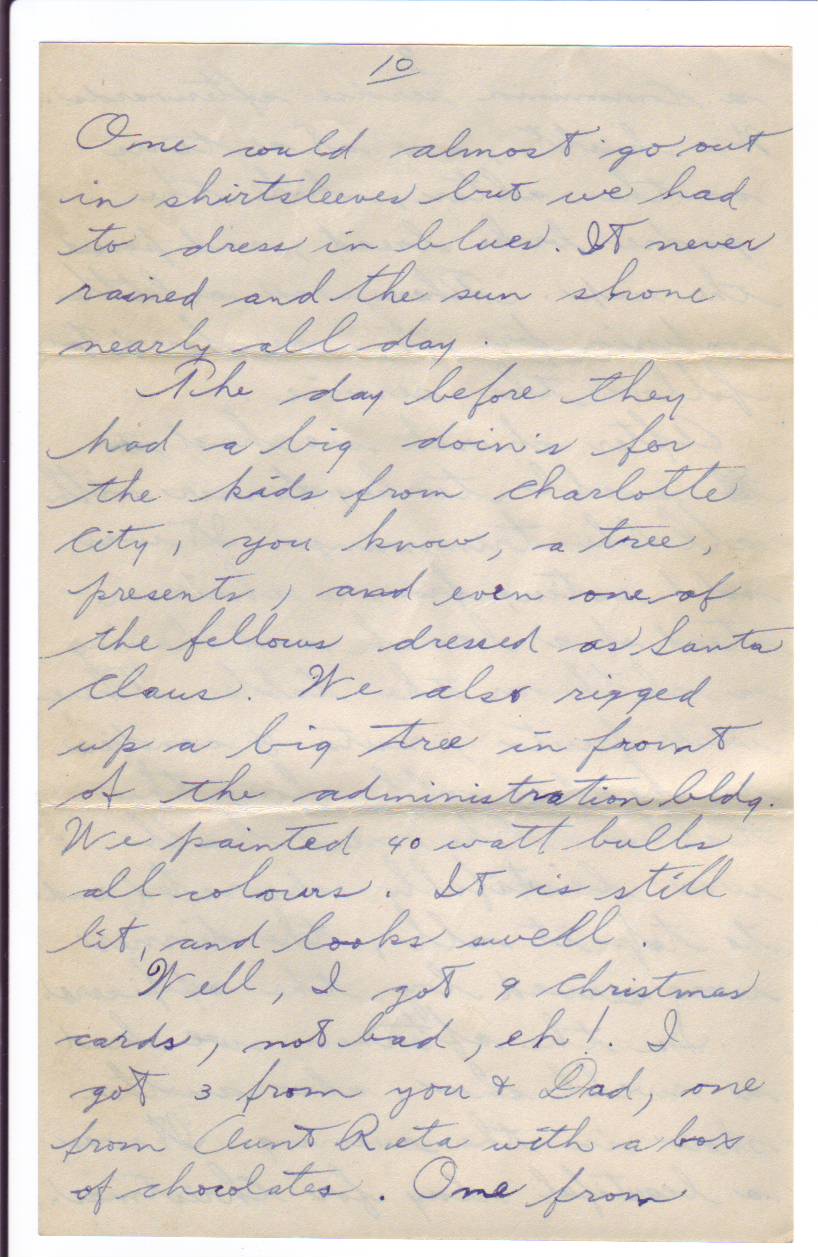 10
One could almost go out
in shirtsleeves but we had
to dress in blues. It never
rained and the sun shone
nearly all day.
The day before they
had a big doin's for
the kids from Charlotte
City, you know, a tree,
presents, and even one of
the fellows dressed as Santa
Claus. We also rigged
up a big tree in front
of the administration bldg.
We painted 40 watt bulbs
all colours. It is still
lit, and looks swell.
Well, I got 9 Christmas
cards, not bad, eh!. I
got 3 from you & Dad, one
from Aunt Reta with a box
of chocolates. One from